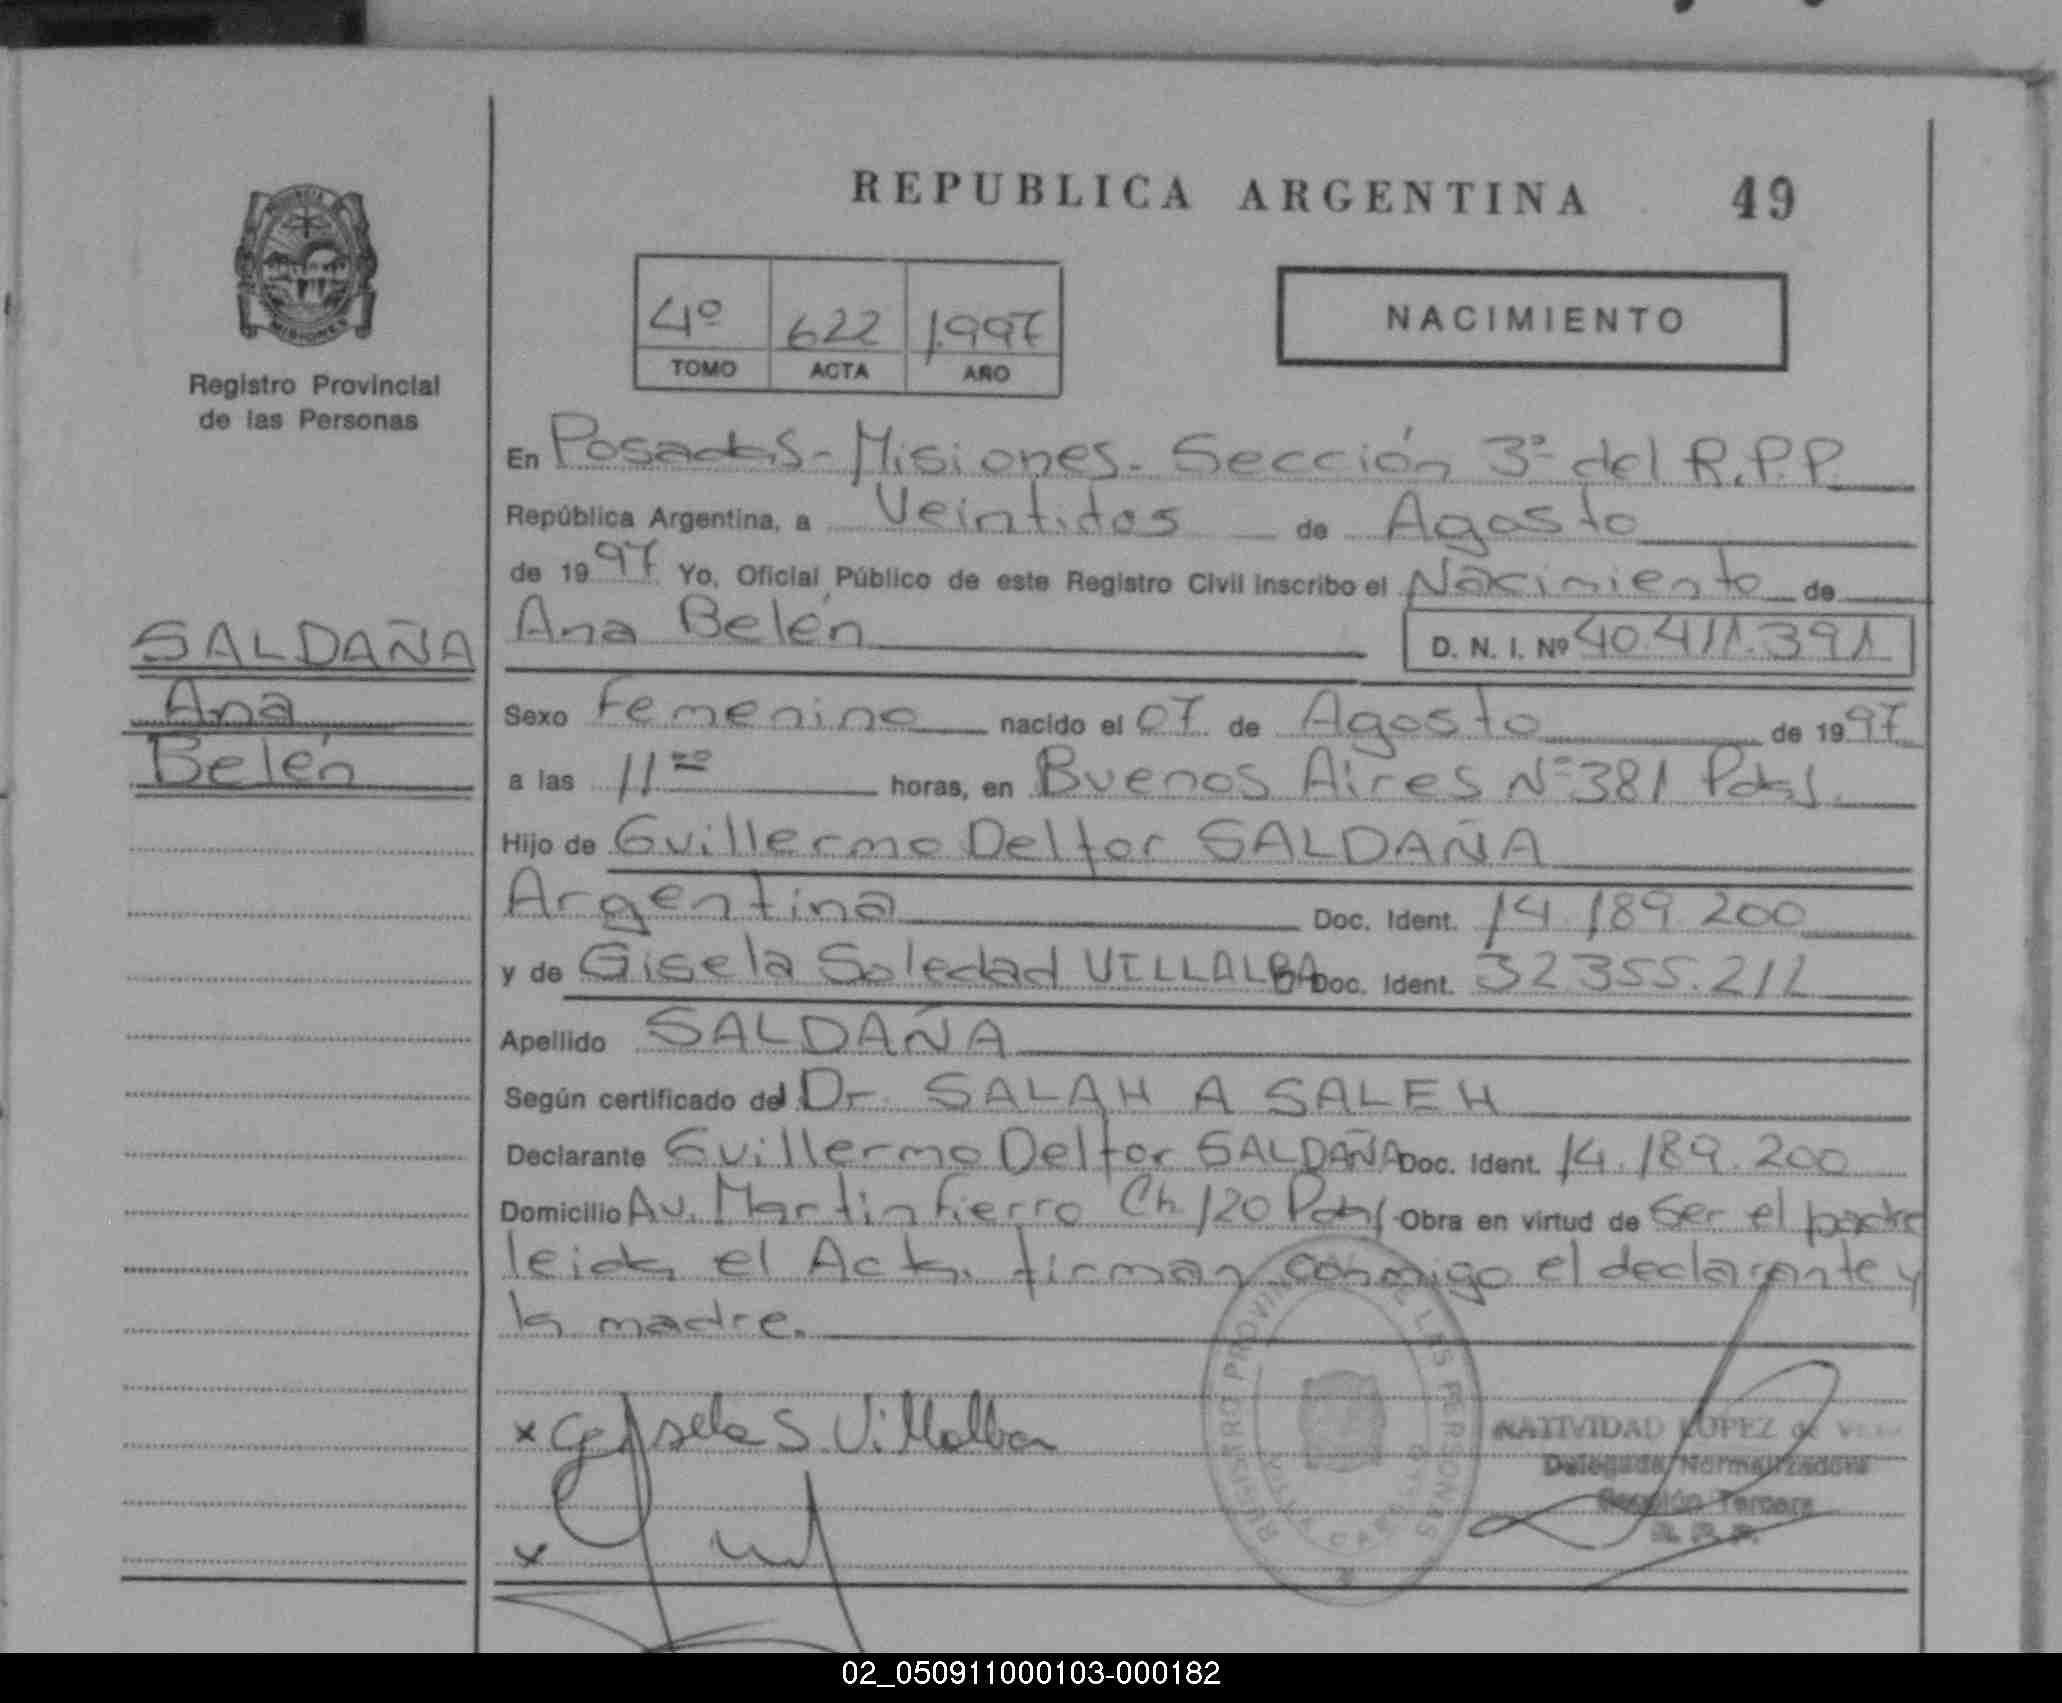 REPUBLICA ARGENTINA 49
4º 622 1.997
TOMO ACTA AÑO
NACIMIENTO
MISIONES
Registro Provincial
de las Personas
SALDAÑA
Ana
Belén
En Posadas - Misiones. Sección 3ª del R.P.P.
República Argentina, a Veintidos de Agosto
de 1997 Yo, Oficial Público de este Registro Civil inscribo el Nacimiento de
Ana Belén D. N. I. Nº 40.411.391
Sexo Femenino nacido el 07 de Agosto de 1997
a las 11⁰⁰ horas, en Buenos Aires Nº 381 Pdas.
Hijo de Guillermo Delfor SALDAÑA
Argentina Doc. Ident. 14.189.200
y de Gisela Soledad VILLALBA Doc. Ident. 32355.212
Apellido SALDAÑA
Según certificado del Dr. SALAH A SALEH
Declarante Guillermo Delfor SALDAÑA Doc. Ident. 14.189.200
Domicilio Av. Martin Fierro Ch 120 Pdas. Obra en virtud de Ser el padre
leida el Acta, firman conmigo el declarante y
la madre.
x Gisela S. Villalba
x
REGISTRO PROVINCIAL DE LAS PERSONAS
NATIVIDAD LOPEZ de
Delegada Normalizadora
Sección Tercera
R.P.P.
02_050911000103-000182